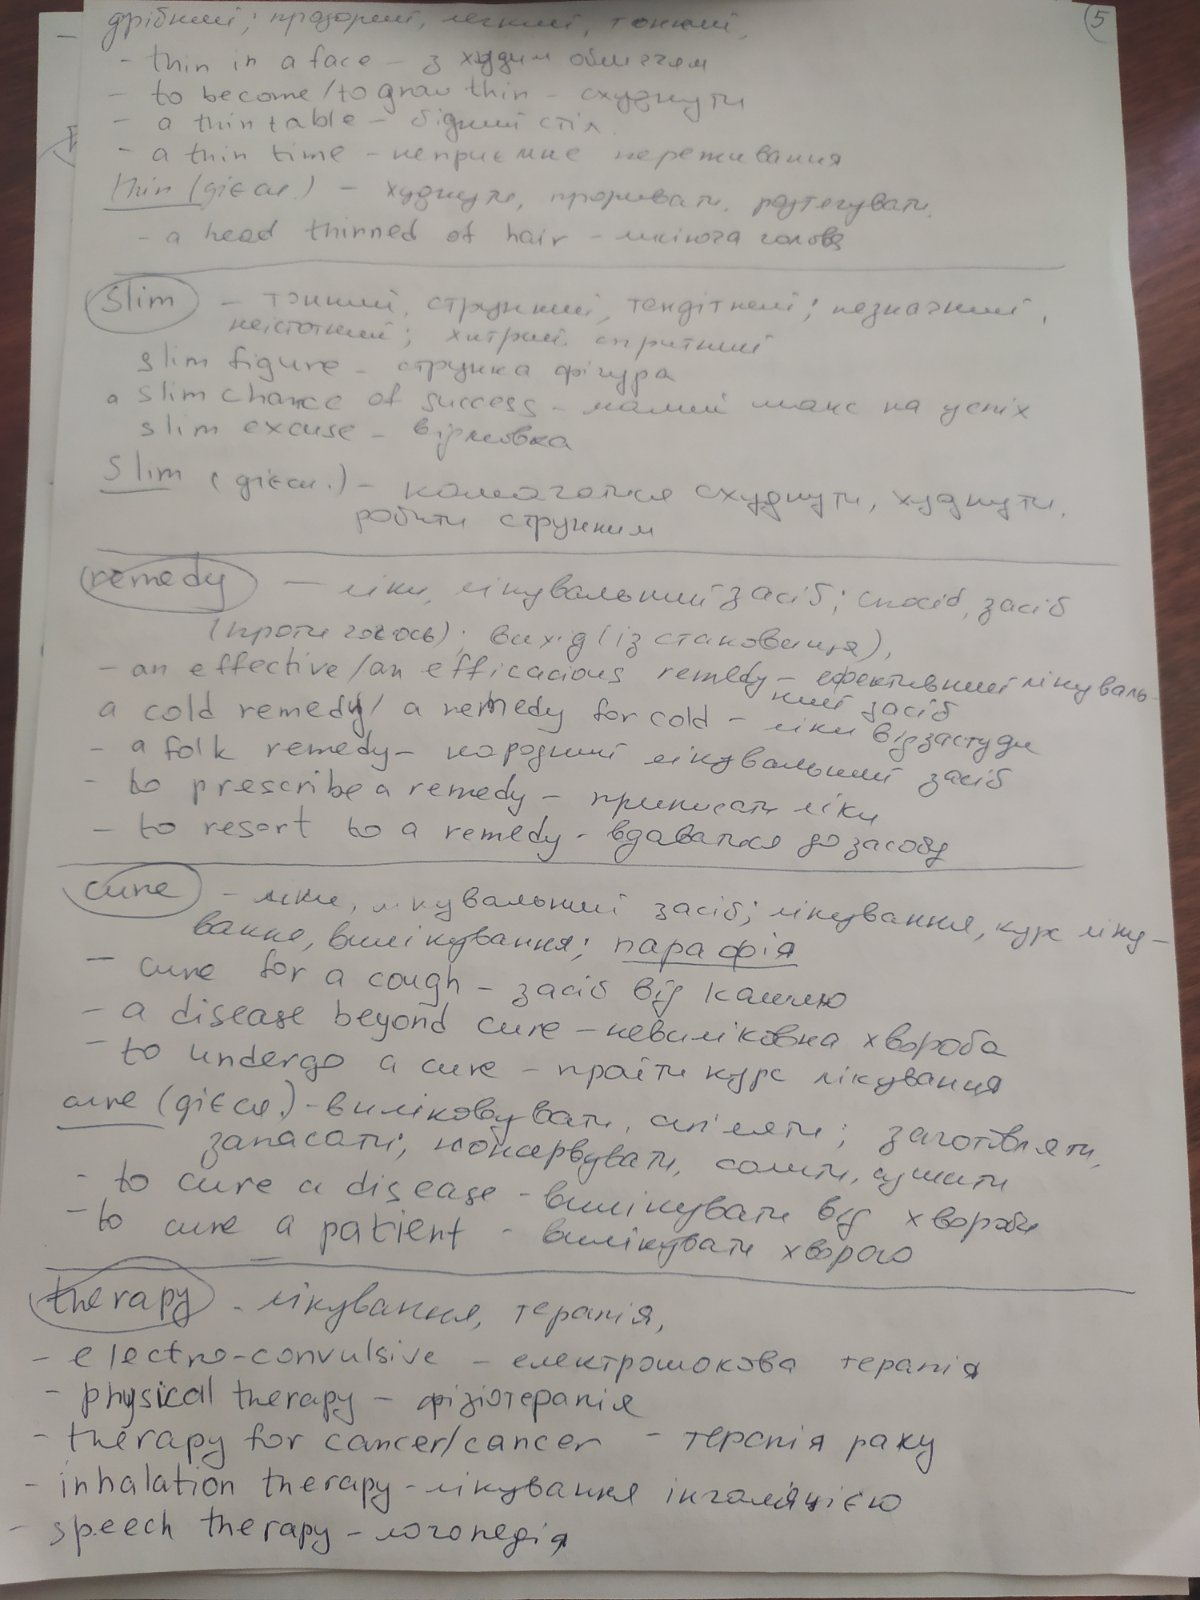 дрібний; прозорий, легкий, тонкий,
5
- thin in a face - з худим обличчям
- to become/to grow thin - схуднути
- a thin table - бідний стіл
- a thin time - неприємне переживання
thin (дієсл.) - худнути, проривати, розтягувати,
- a head thinned of hair - лисіюча голова
slim - тонкий, стрункий, тендітний; незначний,
неістотний; хитрий, спритний
slim figure - струнка фігура
slim chance of success - малий шанс на успіх
slim excuse - відмовка
slim (дієсл.) - намагатися схуднути, худнути,
робити струнким
remedy - ліки, лікувальний засіб; спосіб, засіб
(проти чогось); вихід (із становища),
- an effective/an efficacious remedy - ефективний лікуваль-
ний засіб
a cold remedy/ a remedy for cold - ліки від застуди
- a folk remedy - народний лікувальний засіб
- to prescribe a remedy - приписати ліки
- to resort to a remedy - вдаватися до засобу
cure - ліки, лікувальний засіб; лікування, курс ліку-
вання, вилікування; парафія
- cure for a cough - засіб від кашлю
- a disease beyond cure - невиліковна хвороба
- to undergo a cure - пройти курс лікування
cure (дієсл.) - виліковувати, зціляти; заготовляти,
запасати; консервувати, солити, сушити
- to cure a disease - вилікувати від хвороби
- to cure a patient - вилікувати хворого
therapy - лікування, терапія,
- electro-convulsive - електрошокова терапія
- physical therapy - фізіотерапія
- therapy for cancer/cancer - терапія раку
- inhalation therapy - лікування інгаляцією
- speech therapy - логопедія